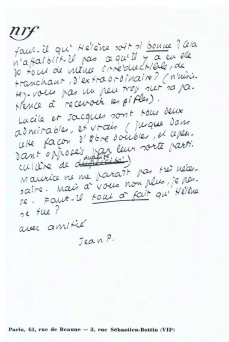 nrf
faut-il qu'Hélène soit si bonne ? Cela
n'affaiblit-il pas ce qu'il y a en elle
de tout de même irréductible, de
tranchant, d'extraordinaire ? (n'insis-
tez-vous pas un peu trop sur sa pa-
tience à recevoir les gifles).
Lucile et Jacques sont tous deux
admirables, et vrais (jusque dans
une façon d'être doubles, et cepen-
dant opposés par leur sorte parti-
culière de dualité)
Maurice ne me paraît pas très néces-
saire. Mais à vous non plus, je pen-
se. Faut-il tout à fait qu'Hélène
se tue ?
avec amitié
Jean P.
Paris, 43, rue de Beaune — 5, rue Sébastien-Bottin (VIIe)